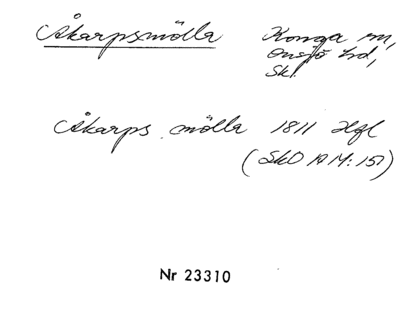 Åkarpsmölla Konga sn,
Onsjö hd,
Sk.
Åkarps mölla 1811 Hfl
(SkO A M:151)
Nr 23310